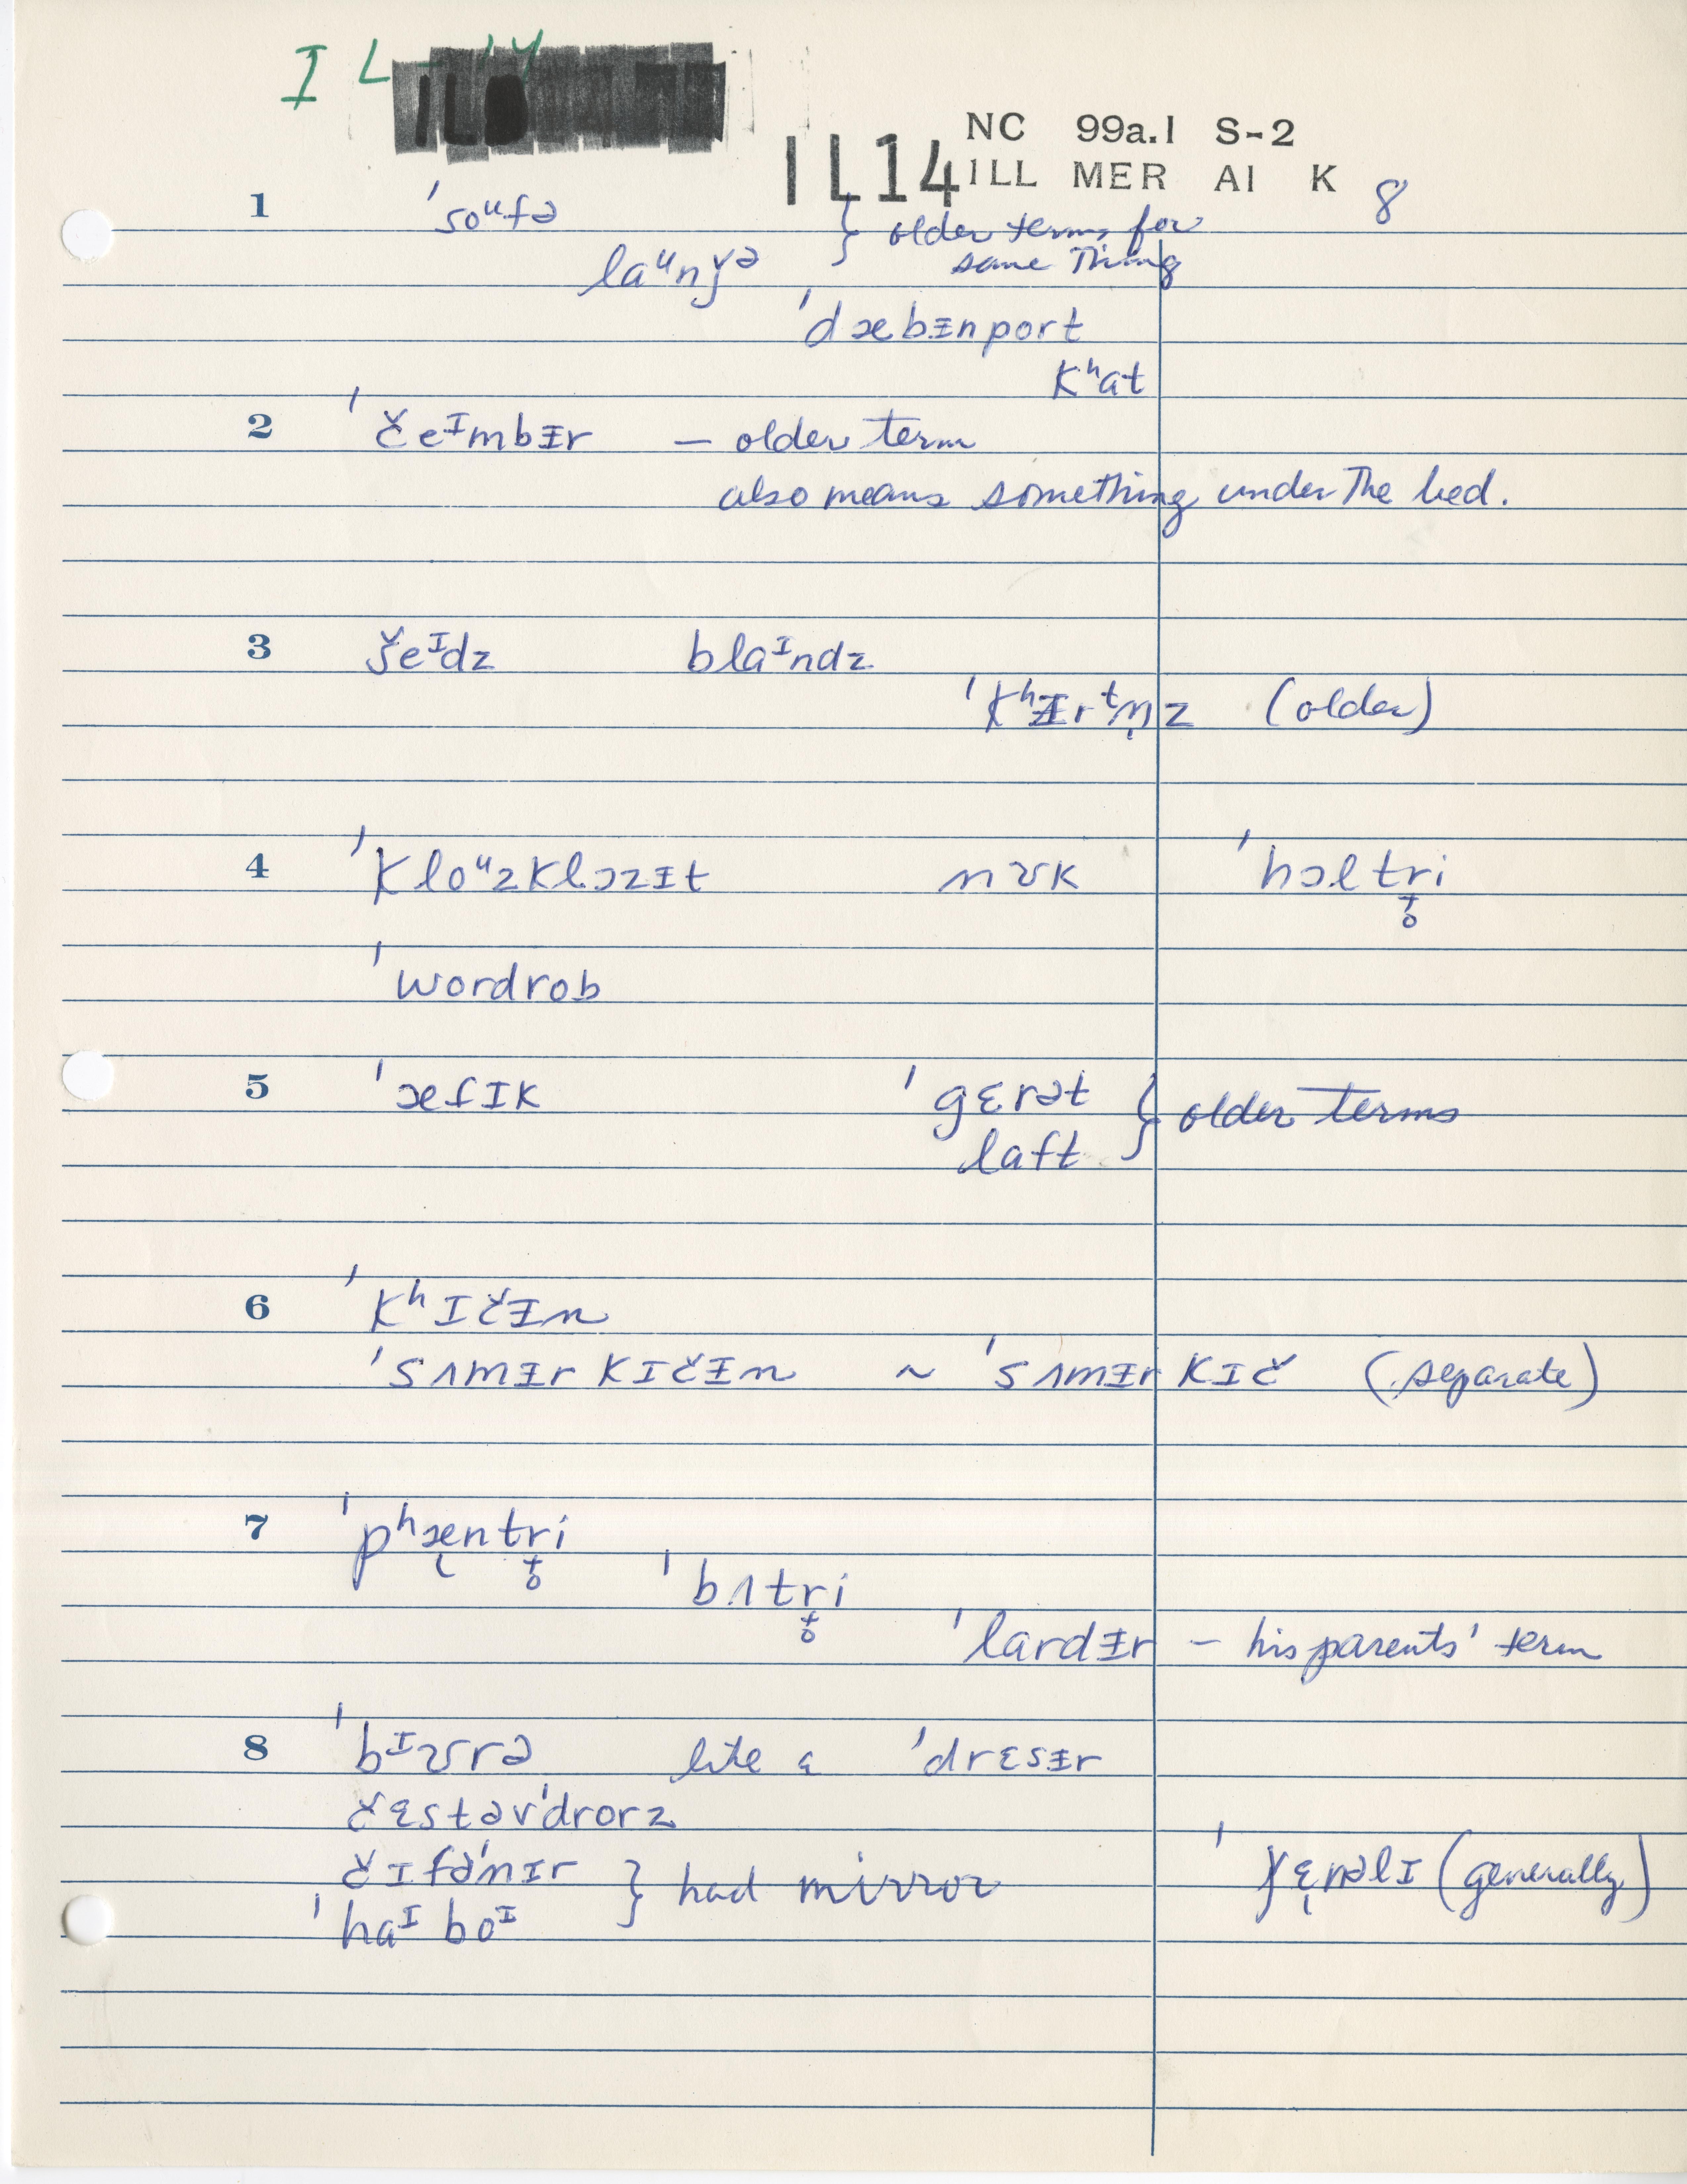 IL-14
IL14 NC 99a.1 S-2
ILL MER AI K 8
1 'soᵘfə } older terms for
laᵘnǰə same Thing
'dæbᵻnport
kʰat
2 'čeᴵmbᵻr – older term
also means something under The bed.
3 šeᴵdz blaᴵndz
'kʰᵻrᵗn̩z (older)
4 'kloᵘzklɔzᵻt nʊk 'hɔltr̥i
'wordrob
5 'æfɪk 'gɛrət } older terms
laft
6 'kʰɪčᵻn
'sʌmᵻr kɪčᵻn ~ 'sʌmᵻr kɪč (separate)
7 'pʰæntr̥i
'bʌtr̥i
'lardᵻr – his parents' term
8 'bᴵʊrə like a 'drɛsᵻr
čɛstəv'drorz
čɪfə'nɪr } had mirror 'ǰɛnəlɪ (generally)
'haᴵ boᴵ